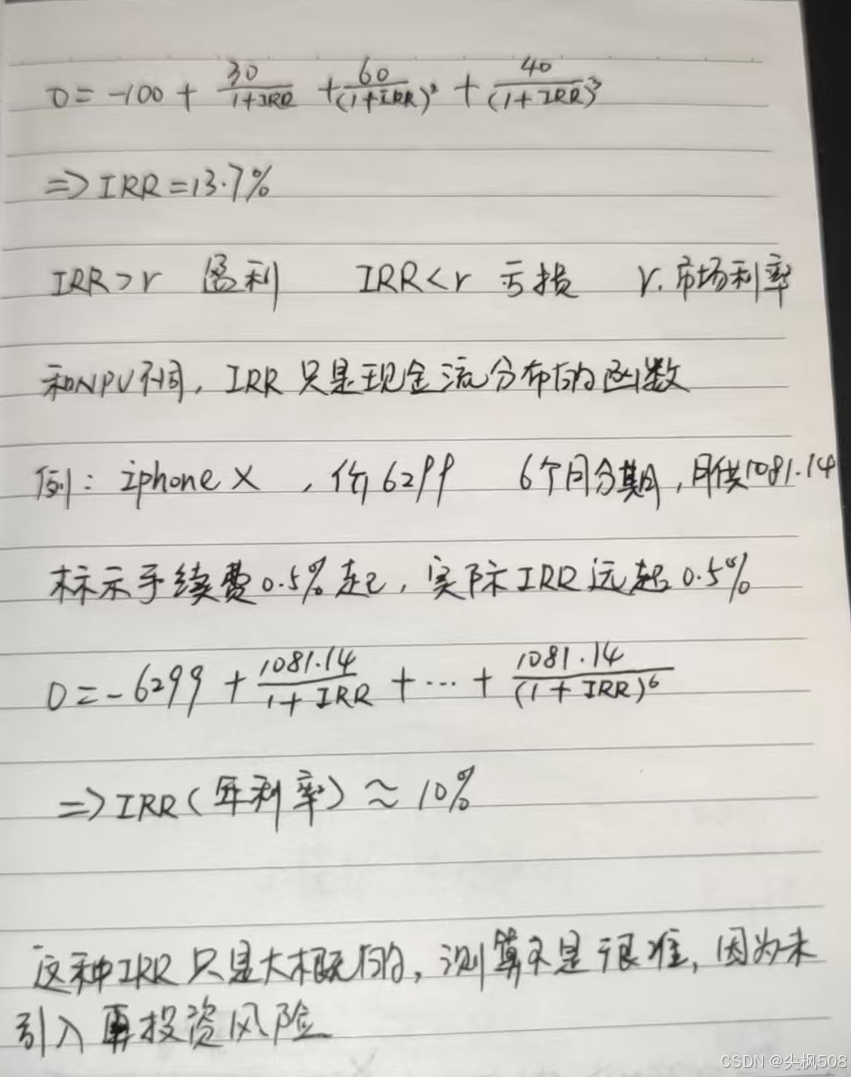 0 = -100 + 30/(1+IRR) + 60/(1+IRR)² + 40/(1+IRR)³
=> IRR = 13.7%
IRR > r 盈利 IRR < r 亏损 r. 市场利率
和NPV不同, IRR 只是现金流分布的函数
例: iphone X , 价 6299 6个月分期, 月供1081.14
标示手续费0.5%起, 实际IRR远超0.5%
0 = -6299 + 1081.14/(1+IRR) + ... + 1081.14/(1+IRR)⁶
=> IRR(年利率) ≈ 10%
这种IRR只是大概的, 测算不是很准, 因为未
引入再投资风险
CSDN @尖枫508